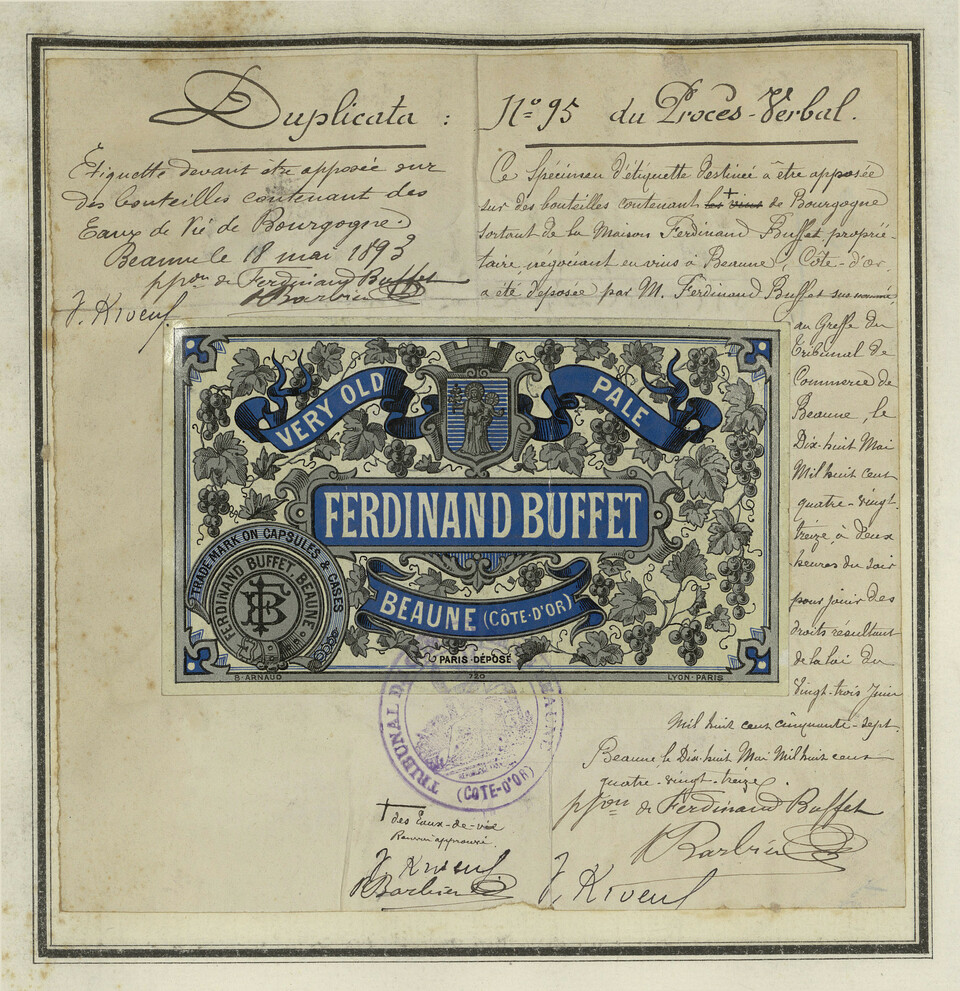 Duplicata : N° 95 du Procès-Verbal.
Etiquette devant être apposée sur
des bouteilles contenant des
Eaux de Vie de Bourgogne.
Beaune le 18 mai 1893
ppon de Ferdinand Buffet
Barbier
Ce Spécimen d'étiquette destinée à être apposée
sur des bouteilles contenant les vins + de Bourgogne
sortant de la Maison Ferdinand Buffet proprié-
taire, négociant en vins à Beaune, Côte-d'or,
a été déposée par M. Ferdinand Buffet susnommé,
au Greffe du
Tribunal de
Commerce de
Beaune, le
Dix-huit Mai
Mil huit cent
quatre-vingt-
treize, à deux
heures du soir
pour jouir des
droits résultant
de la loi du
Vingt-trois Juin
Mil huit cent cinquante-sept.
Beaune le Dix-huit Mai Mil huit cent
quatre-vingt-treize.
ppon de Ferdinand Buffet
Barbier
VERY OLD PALE
FERDINAND BUFFET
BEAUNE (CÔTE-D'OR)
TRADE MARK ON CAPSULES & CASES
FERDINAND BUFFET BEAUNE
FB
PARIS DÉPOSÉ
B. ARNAUD 720 LYON-PARIS
TRIBUNAL DE BEAUNE
(COTE-D'OR)
+ des Eaux-de-vie
Renvoi approuvé.
Barbier